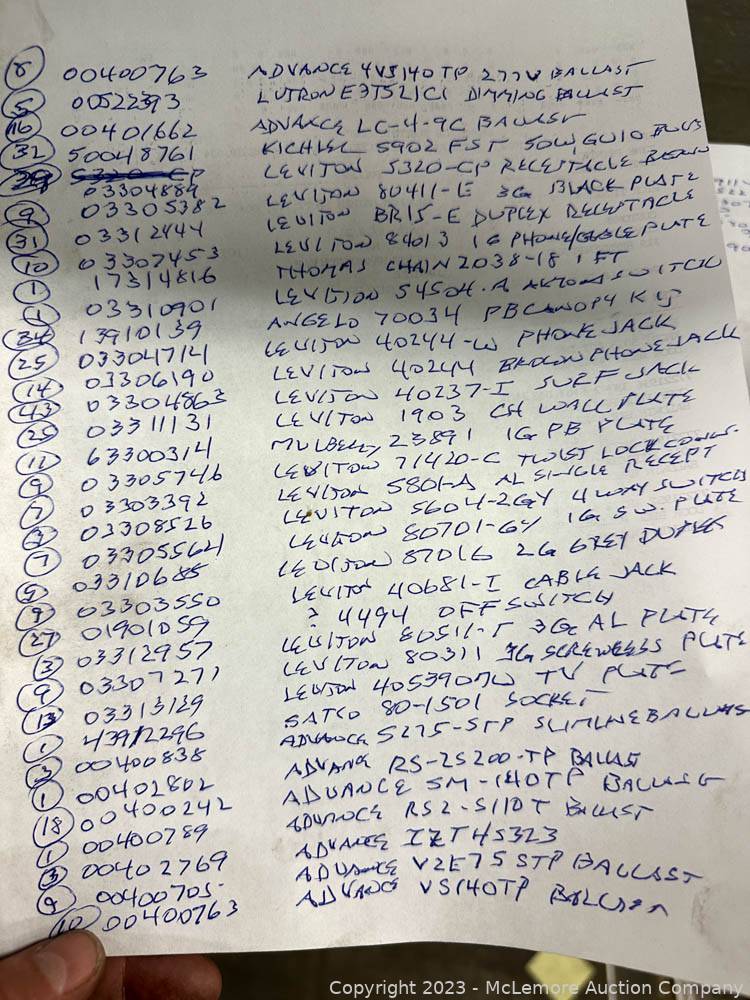 8 00400763 ADVANCE 4VS140TP 277V BALLAST
5 00522393 LUTRON E3T521C1 DIMMING BALLAST
16 00401662 ADVANCE LC-4-9C BALLAST
32 50048761 KICHLER 5902 FST 50W GU10 BULB
29 5320-CP 03304889 LEVITON 5320-CP RECEPTACLE BROWN
9 03305382 LEVITON 80411-E 3G BLACK PLATE
31 03312444 LEVITON BR15-E DUPLEX RECEPTACLE
10 03307453 LEVITON 84013 1G PHONE/CABLE PLATE
1 17314816 THOMAS CHAIN 2038-18 1 FT
1 03310901 LEVITON SWITCH
34 13910139 ANGELO 70034 PB CANOPY KIT
25 03304714 LEVITON 40244-W PHONE JACK
14 03306190 LEVITON 40244 BROWN PHONE JACK
43 03304863 LEVITON 40237-I SURF JACK
25 03311131 LEVITON 1903 CH WALL PLATE
11 63300314 MULBERRY 23891 1G PB PLATE
9 03305746 LEVITON 71420-C TWIST LOCK CONN.
7 03303392 LEVITON 5801-A AL SINGLE RECEPT
3 03308526 LEVITON 5604-2GY 4 WAY SWITCH
7 03305564 LEVITON 80701-GY 1G SW. PLATE
5 03310685 LEVITON 87016 2G GREY DUPLEX
9 03303550 LEVITON 40681-I CABLE JACK
27 01901059 ? 4494 OFF SWITCH
3 03312957 LEVITON 80511-T 3G AL PLATE
9 03307271 LEVITON 80311 3G SCREWLESS PLATE
13 03313139 LEVITON 40539 TV PLATE
1 43912296 SATCO 80-1501 SOCKET
3 00400838 ADVANCE S275-STP SLIMLINE BALLAST
1 00402802 ADVANCE RS-2S200-TP BALLAST
18 00400242 ADVANCE SM-140TP BALLAST
1 00400789 ADVANCE RS2-S110T BALLAST
3 00402769 ADVANCE IZT4S323
9 00400705 ADVANCE V2E75STP BALLAST
10 00400763 ADVANCE VS140TP BALLAST
Copyright 2023 - McLemore Auction Company